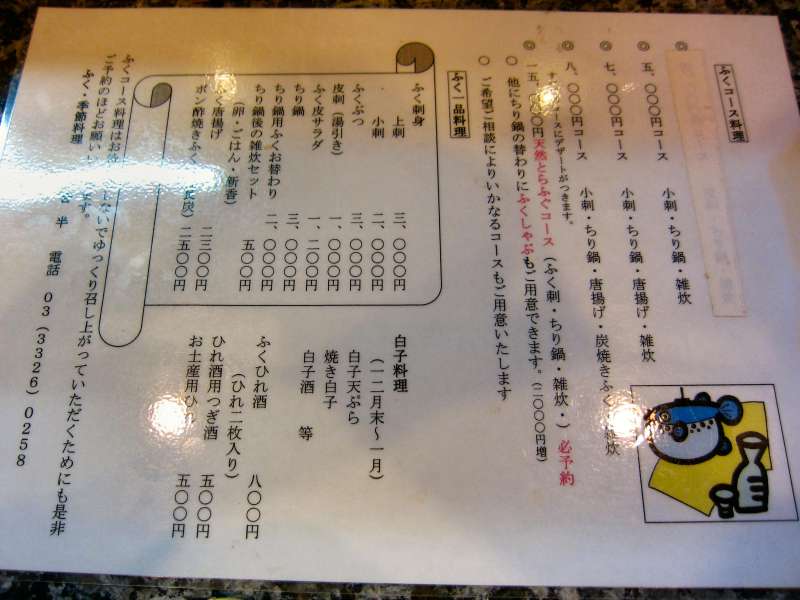 ふくコース料理
◎ 五、〇〇〇円コース 小刺・ちり鍋・雑炊
◎ 七、〇〇〇円コース 小刺・ちり鍋・唐揚げ・雑炊
◎ 八、〇〇〇円コース 小刺・ちり鍋・唐揚げ・炭焼きふく 雑炊
コースにデザートがつきます。
◎ 一五、 〇〇円天然とらふぐコース（ふく刺・ちり鍋・雑炊・）必予約
〇 他にちり鍋の替わりにふくしゃぶもご用意できます。（二〇〇〇円増）
〇 ご希望ご相談によりいかなるコースもご用意いたします
ふく一品料理
ふく刺身
上刺 三、〇〇〇円
小刺 二、〇〇〇円
ふくぶつ 三、〇〇〇円
皮刺（湯引き） 一、〇〇〇円
ふく皮サラダ 一、二〇〇円
ちり鍋 三、〇〇〇円
ちり鍋用ふくお替わり 二、〇〇〇円
ちり鍋後の雑炊セット 五〇〇円
（卵・ごはん・新香）
ふく唐揚げ 二三〇〇円
ポン酢焼きふく 二五〇〇円
白子料理
（一二月末〜一月）
白子天ぷら
焼き白子
白子酒 等
ふくひれ酒 八〇〇円
（ひれ二枚入り）
ひれ酒用つぎ酒 五〇〇円
お土産用ひれ 五〇〇円
ふくコース料理はお待 しないでゆっくり召し上がっていただくためにも是非
ご予約のほどお願いい ます。
ふく・季節料理 半 電話 03（3326）0258